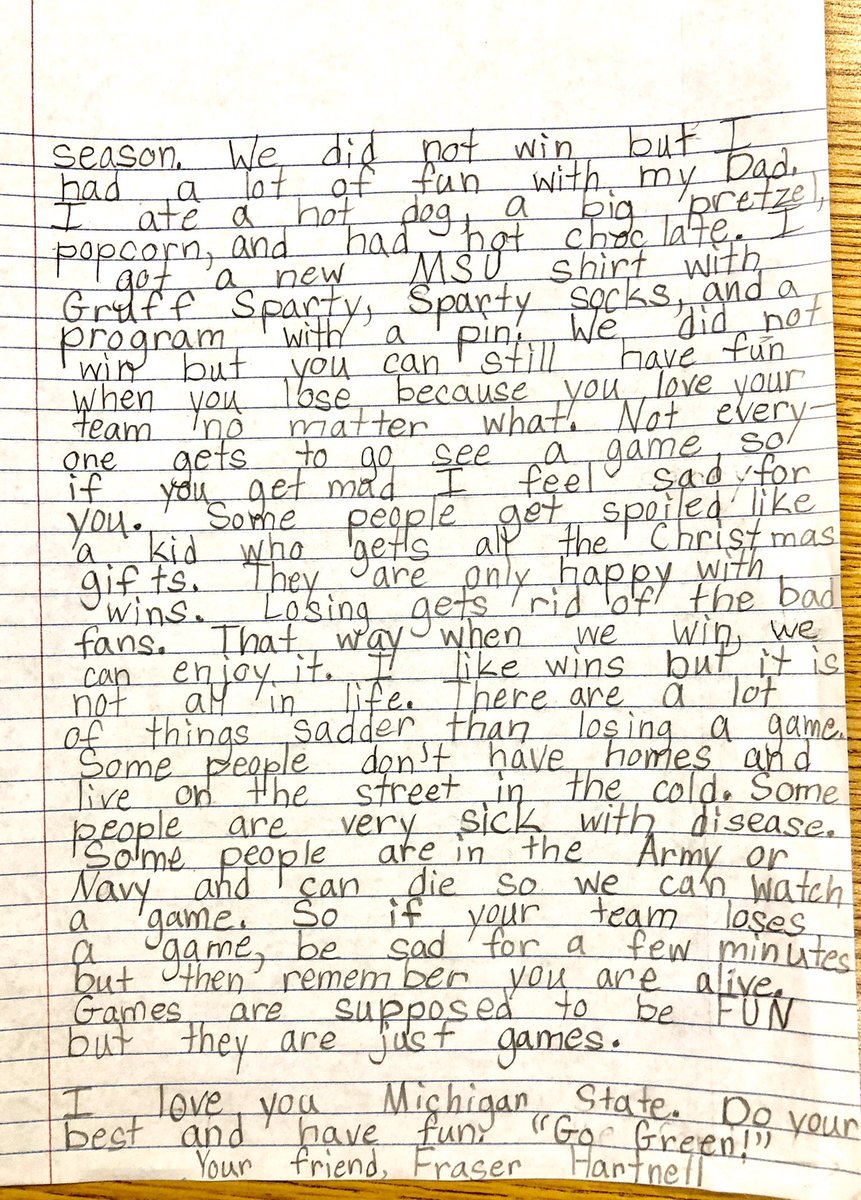 season. We did not win but I
had a lot of fun with my Dad.
I ate a hot dog, a big pretzel,
popcorn, and had hot choclate. I
got a new MSU shirt with
Gruff Sparty, Sparty socks, and a
program with a pin. We did not
win but you can still have fun
when you lose because you love your
team no matter what. Not every-
one gets to go see a game, so
if you get mad I feel sad for
you. Some people get spoiled like
a kid who gets all the Christmas
gifts. They are only happy with
wins. Losing gets rid of the bad
fans. That way when we win, we
can enjoy it. I like wins but it is
not all in life. There are a lot
of things sadder than losing a game.
Some people don't have homes and
live on the street in the cold. Some
people are very sick with disease.
Some people are in the Army or
Navy and can die so we can watch
a game. So if your team loses
a game, be sad for a few minutes
but then remember you are alive.
Games are supposed to be FUN
but they are just games.
I love you Michigan State. Do your
best and have fun. "Go Green!"
Your friend, Fraser Hartnell